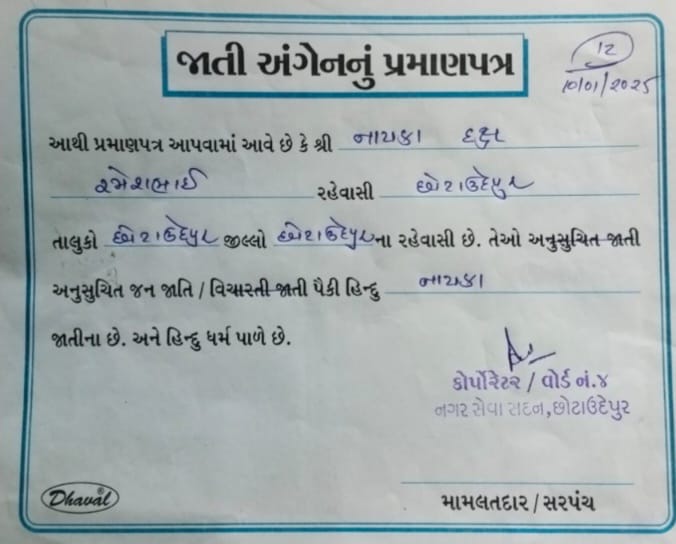 જાતી અંગેનનું પ્રમાણપત્ર
12
10/01/2025
આથી પ્રમાણપત્ર આપવામાં આવે છે કે શ્રી નાયકા દક્ષ
રમેશભાઈ રહેવાસી છોટાઉદેપુર
તાલુકો છોટાઉદેપુર જીલ્લો છોટાઉદેપુર ના રહેવાસી છે. તેઓ અનુસુચિત જાતી
અનુસુચિત જન જાતિ / વિચારતી જાતી પૈકી હિન્દુ નાયકા
જાતીના છે. અને હિન્દુ ધર્મ પાળે છે.
કોર્પોરેટર / વોર્ડ નં.૪
નગર સેવા સદન, છોટાઉદેપુર
Dhaval®
મામલતદાર/સરપંચ